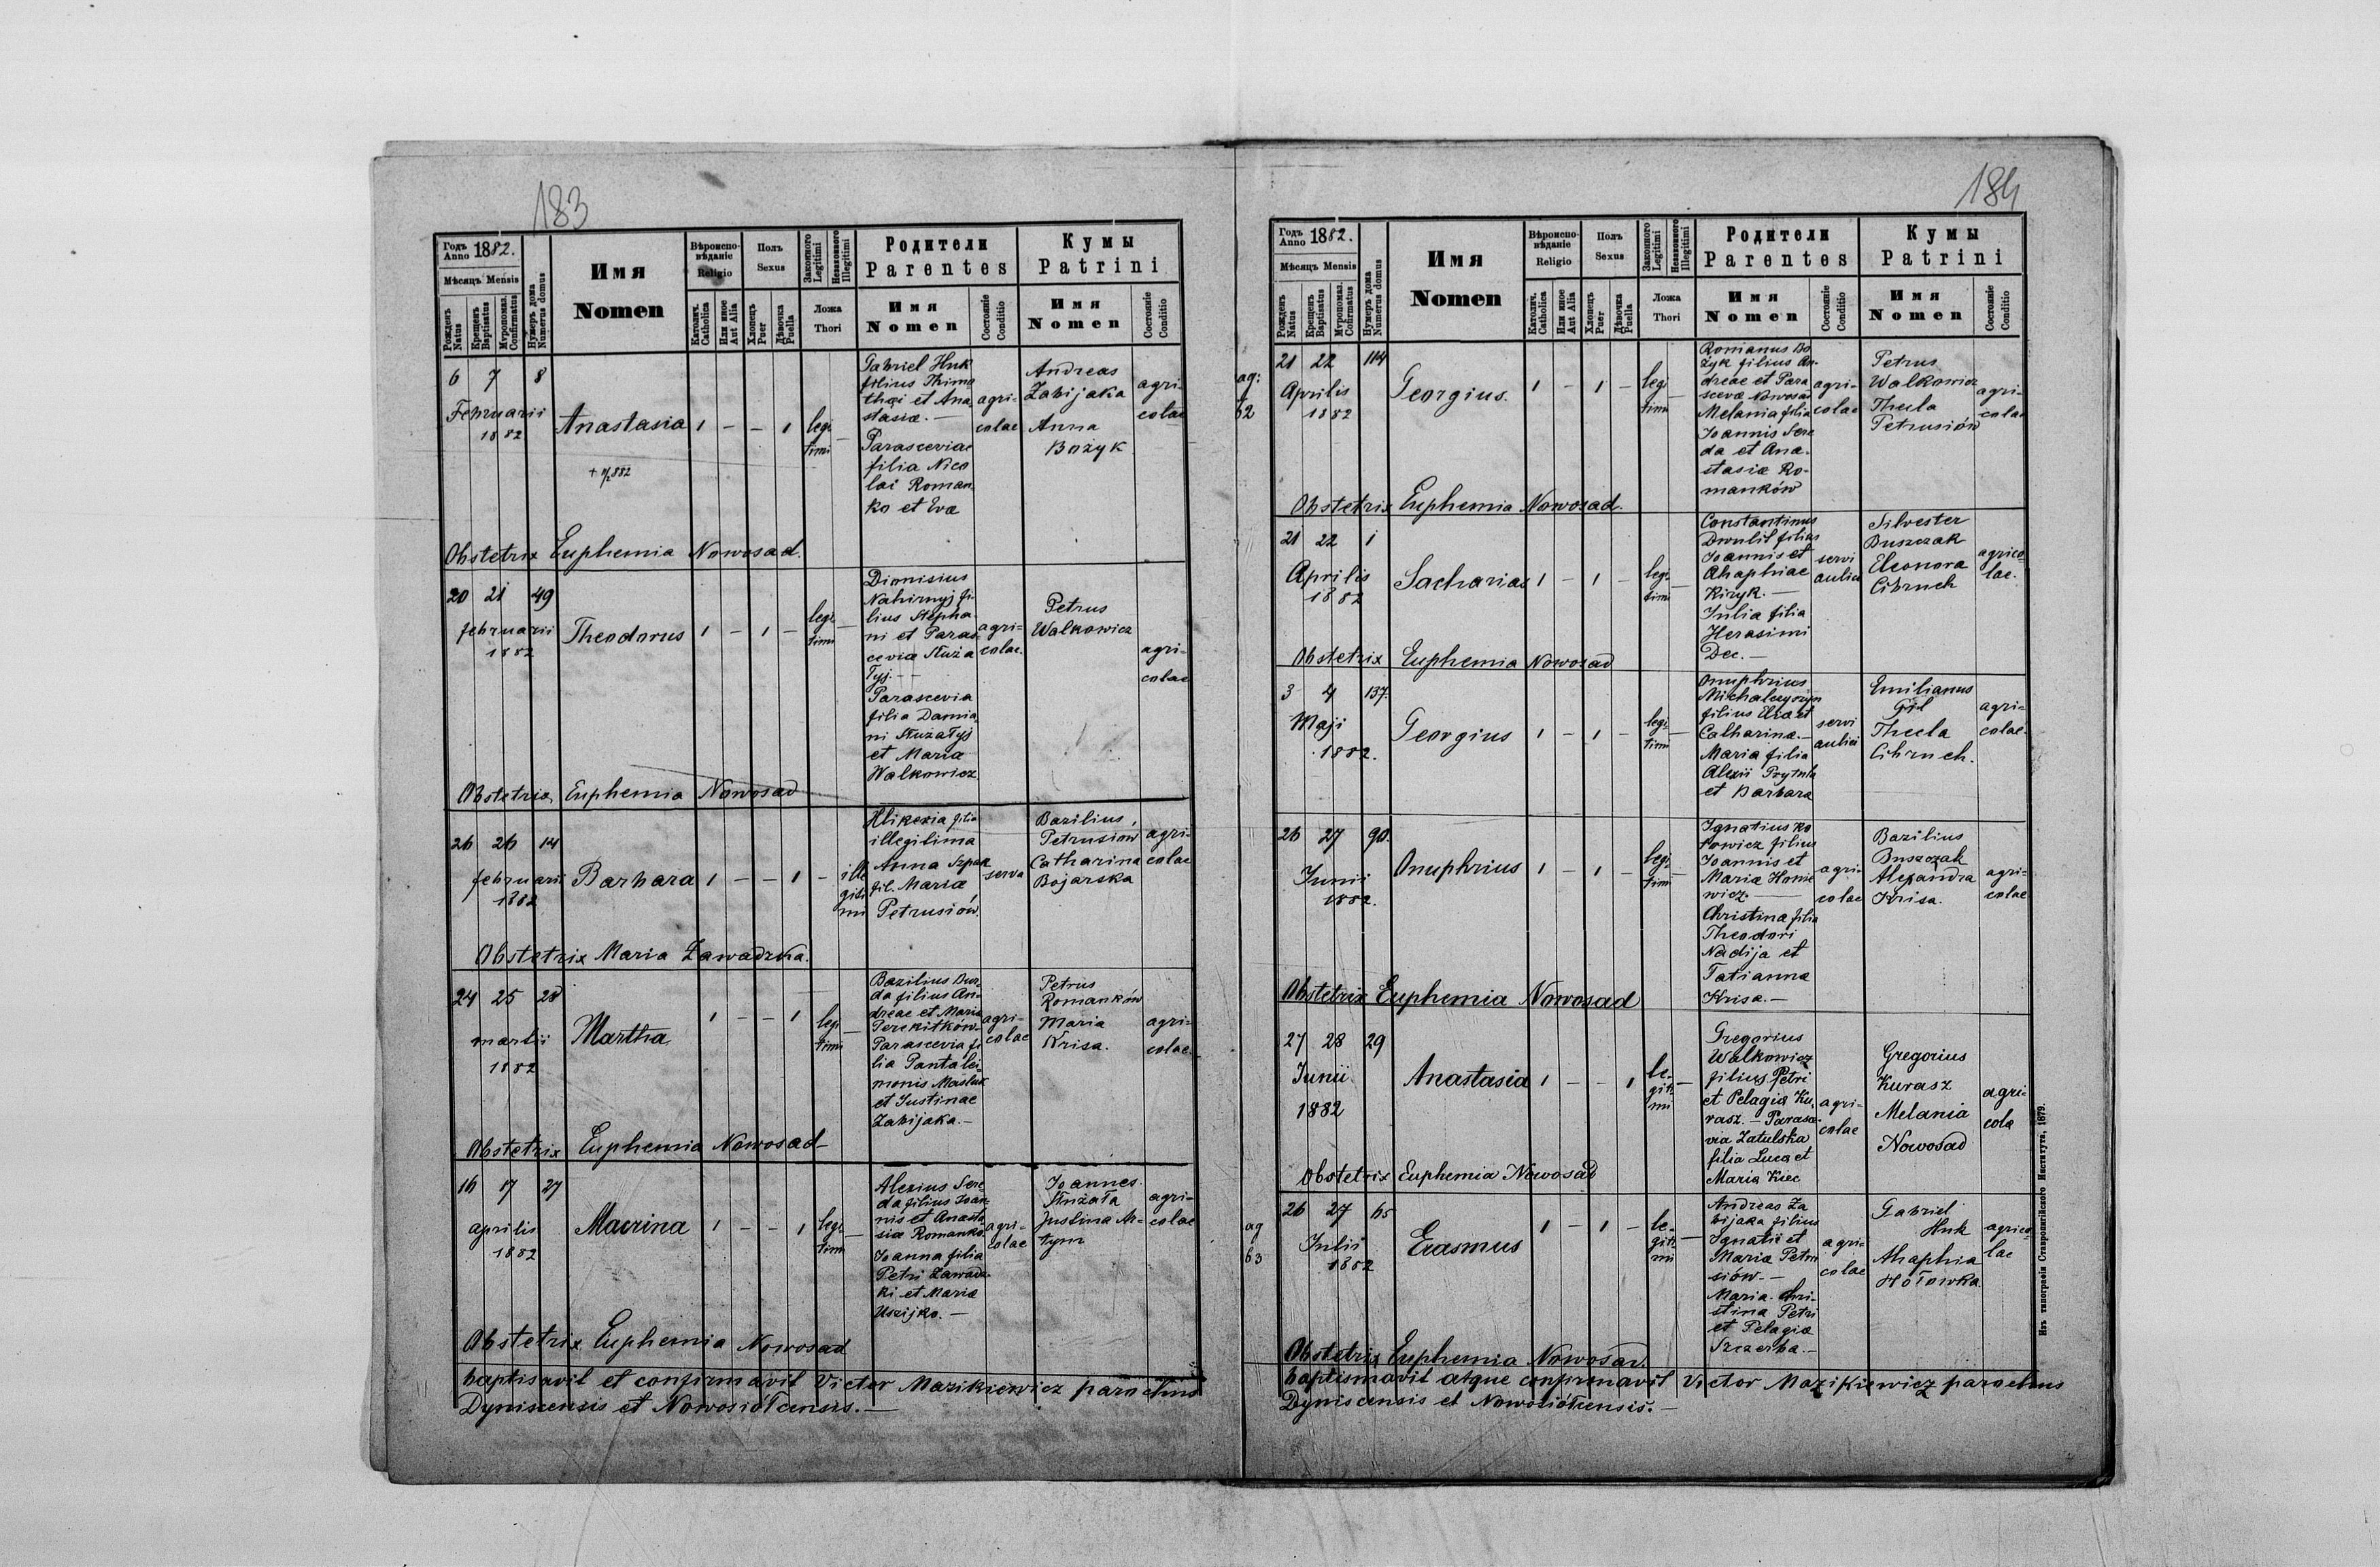 183
Годъ Anno 1882.
Мѣсяцъ Mensis
Рожденъ Natus
Крещенъ Baptisatus
Мѵропомаз. Cofirmatus
Нумеръ дома Numerus domus
Имя
Nomen
Вѣроиспо-
вѣданіе
Religio
Католич. Catholica
Или иное Aut Alia
Полъ
Sexus
Хлопецъ Puer
Дѣвочка Puella
Законного Legitimi
Незаконного Illegitimi
Ложа
Thori
Родители
Parentes
Имя
Nomen
Состояніе Conditio
Кумы
Patrini
Имя
Nomen
Состояніе Conditio
6 7 8
Februarii
1882
Anastasia
1 — — 1
legi
timi
—
Gabriel Huk
filius Thimo
thei et Ana
stasiæ. —
Parasceviae
filia Nico
lai Roman
ko et Eva
agri-
colae
Andreas
Zabijaka
Anna
Bożyk
agri-
colae
Obstetrix Euphemia Nowosad.
20 21 49
februarii
1882
Theodorus
1 — 1 —
legi
timi
—
Dionisius
Nahirnyj fi-
lius Stepha
ni et Paras
ceviæ
Tyj. —
Parascevia
filia Damia
ni
et Maria
Walkowicz
agri=
colae.
Petrus
Walkowicz
agri-
colae
Obstetrix Euphemia Nowosad
26 26 14
februarii
1882
Barbara
1 — — 1 —
ille
giti
mi
filia
illegitima
Anna Szpak
fil. Mariæ
Petrusiów.
serva
Bazilius
Petrusiow
Catharina
Bojarska
agri-
colae
Obstetrix Maria Zawadzka.
24 25 28
martii
1882
Martha
1 — — 1
legi
timi
—
Bazilius
da filius An-
dreae et Maria
Perekitków
Parascevia fi
lia Pantalei
monis
et Justinae
Zabijaka. —
agri-
colae
Petrus
Romanków
Maria
Krisa.
agri-
colae.
Obstetrix Euphemia Nowosad
16 17 27
aprilis
1882
Macrina
1 — — 1
legi
timi
—
Alexius Sere
da filius Joan
nis et Anasta
siæ Romanko.
Joanna filia
Petri Zawadz
ki et Mariæ
Uszijko. —
agri-
colae
Joannes
Justina Ar-
tym
agri-
colae
Obstetrix Euphemia Nowosad
baptisavit et confirmavit Victor Mazikiewicz parochus
Dyniscensis et Nowosiółcensis. —
184
Годъ Anno 1882.
Мѣсяцъ Mensis
Рожденъ Natus
Крещенъ Baptisatus
Мѵропомаз. Cofirmatus
Нумеръ дома Numerus domus
Имя
Nomen
Вѣроиспо-
вѣданіе
Religio
Католич. Catholica
Или иное Aut Alia
Полъ
Sexus
Хлопецъ Puer
Дѣвочка Puella
Законного Legitimi
Незаконного Illegitimi
Ложа
Thori
Родители
Parentes
Имя
Nomen
Состояніе Conditio
Кумы
Patrini
Имя
Nomen
Состояніе Conditio
21 22 114
Aprilis
1882
Georgius.
1 — 1 —
legi
timi
—
Romanus Bo
żyk filius An-
dreae et Para
scevæ Nowosad
Melania filia
Joannis Sere
da et Ana-
stasiæ Ro-
manków
agri-
colae
Petrus
Walkowicz
Thecla
Petrusiów
agri-
colae
Obstetrix Euphemia Nowosad.
21 22 1
Aprilis
1882
Sacharias
1 — 1 —
legi
timi
—
Constantinus
Dwulit filius
Joannis et
Ahaphiae
Kiryk. —
Julia filia
Herasimi
Dec. —
servi
aulici
Silvester
Buszczak
Eleonora
Cihruch
agrico
lae.
Obstetrix Euphemia Nowosad
3 4 137.
Maji
1882.
Georgius
1 — 1 —
legi
timi
—
Onuphrius
filius Eliæ et
Catharinæ. —
Maria filia
Alexii Prytula
et Barbara
servi
aulici
Emilianus
Gil
Thecla
Cihruch.
agri=
colae.
26 27 90.
Junii
1882.
Onuphrius
1 — 1 —
legi
timi
—
Ignatius Ko
towicz filius
Joannis et
Mariæ
wicz. —
Christina filia
Theodori
Nadija et
Tatianna
Krisa. —
agri-
colae
Bazilius
Buszczak
Alexandra
Krisa.
agri=
colae
Obstetrix Euphemia Nowosad
27 28 29
Junii
1882
Anastasia
1 — — 1
le-
giti
mi
—
Gregorius
Walkowicz
filius Petri
et Pelagiæ Ku
rasz. — Parasce
via Zatulska
filia Lucæ et
Maria Kiec
agri-
colae
Gregorius
Kurasz
Melania
Nowosad
agri-
cola
Obstetrix Euphemia Nowosad
26 27 65
Julii
1882
Erasmus
1 — 1 —
le-
giti
mi
—
Andreas Za
bijaka filius
Ignatii et
Mariæ Petru
siów. —
Maria-Chri-
stina Petri
et Pelagiæ
Szczerba. —
agri-
colae
Gabriel
Huk
Ahaphia
Hołowka.
agrico
lae
Obstetrix Euphemia Nowosad.
baptismavit atque confirmavit Victor Mazikiewicz parochus
Dyniscensis et Nowosiółcensis. —
Изъ типографіи Ставропигійского Института, 1879.